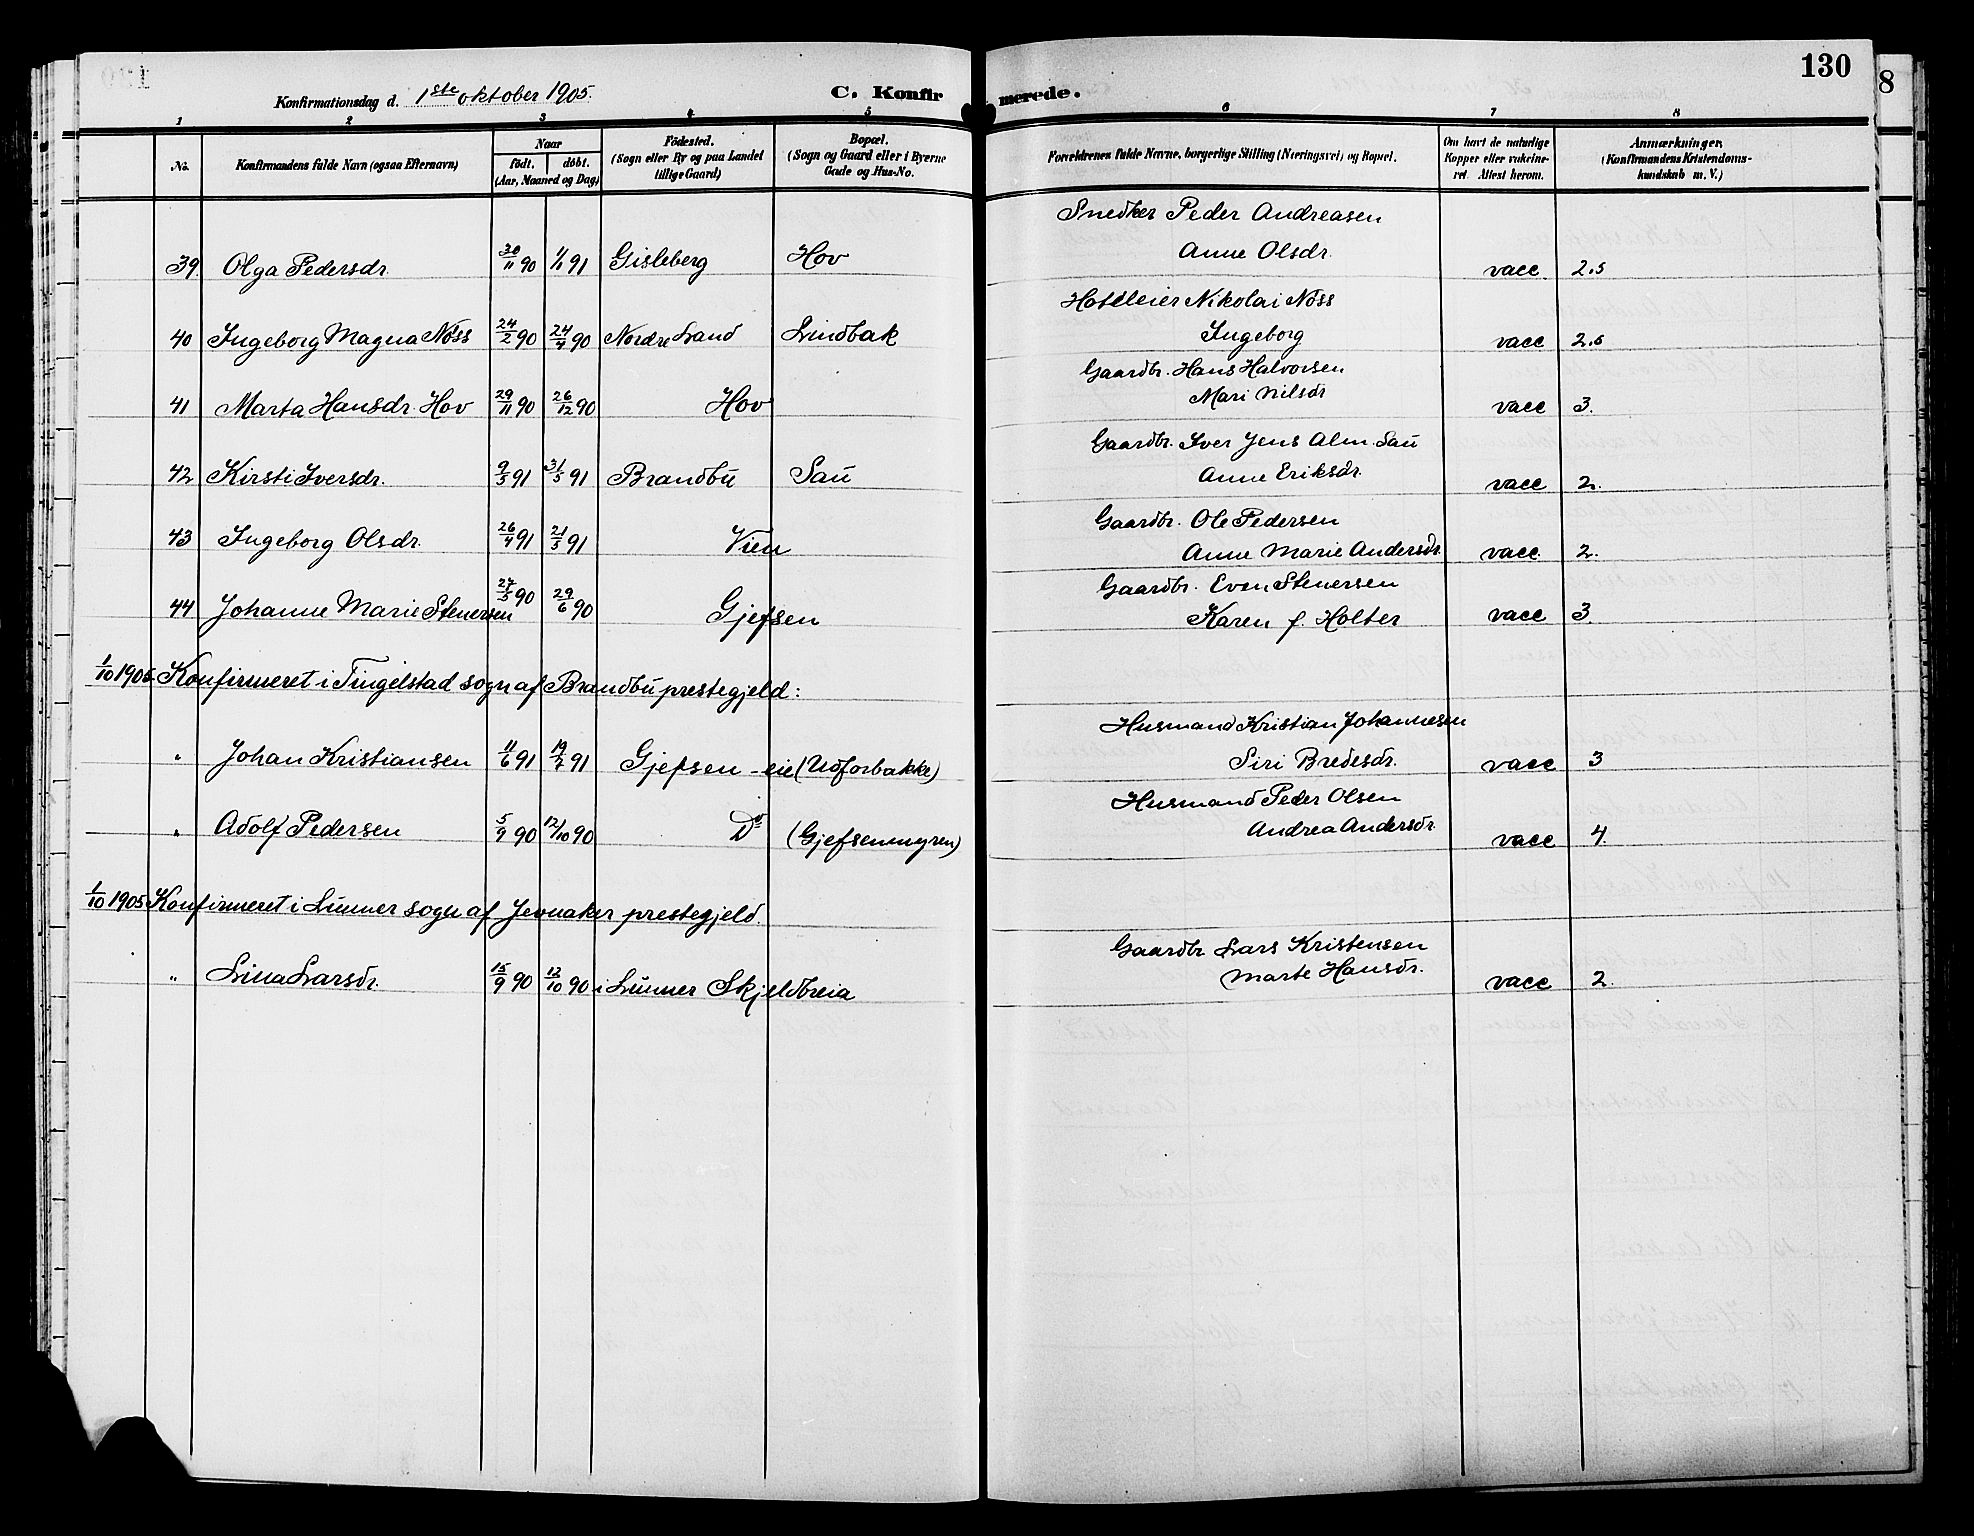 130
8
Konfirmationsdag d. 1ste oktober 1905.
C. Konfirmerede.
1 2 3 4 5 6 7 8
No.
Konfirmandens fulde Navn (ogsaa Efternavn)
Naar
födt. döbt.
(Aar, Maaned og Dag)
Födested.
(Sogn eller By og paa Landet
tillige Gaard)
Bopæl.
(Sogn og Gaard eller i Byerne
Gade og Hus-No.
Forældrenes fulde Navne, borgerlige Stilling (Næringsvei) og Bopæl.
Om havt de naturlige
Kopper eller vakcine-
ret. Attest herom.
Anmærkninger.
(Konfirmandens Kristendoms-
kundskab m. V.)
Snedker Peder Andreasen
39. Olga Pedersdr. 30/11 90 1/1 91 Gisleberg Hov Anne Olsdr. vacc 2.5
Hotelleier Nikolai Nöss
40 Ingeborg Magna Nöss 24/2 90 24/4 90 Nordre Land Lindbak Ingeborg vacc 2.5
Gaardbr. Hans Halvorsen
41 Marta Hansdr. Hov 29/11 90 26/12 90 Hov Mari Nilsdr vacc 3.
Gaardbr. Iver Jens Alm. Sau
42 Kirsti Iversdr. 9/5 91 31/5 91 Brandbu Sau Anne Eriksdr. vacc 2.
Gaardbr. Ole Pedersen
43 Ingeborg Olsdr. 26/4 91 21/5 91 Vien Anne Marie Andersdr. vacc. 2.
Gaardbr. Even Stenersen
44 Johanne Marie Stenersen 27/5 90 29/6 90 Gjefsen Karen f. Holter vacc 3
1/10 1905 Konfirmeret i Tingelstad sogn af Brandbu prestegjeld:
Husmand Kristian Johannesen
" Johan Kristiansen 11/6 91 19/7 91 Gjefsen-eie (Udforbakke) Siri Bredesdr. vacc 3
Husmand Peder Olsen
" Adolf Pedersen 5/9 90 12/10 90 Do (Gjefsenmyren) Andrea Andersdr. vacc 4.
1/10 1905 Konfirmeret i Lunner sogn af Jevnaker prestegjeld.
Gaardbr Lars Kristensen
" Lina Larsdr. 15/9 90 12/10 90 i Lunner Skjeldbreia Marte Hansdr. vacc 2.